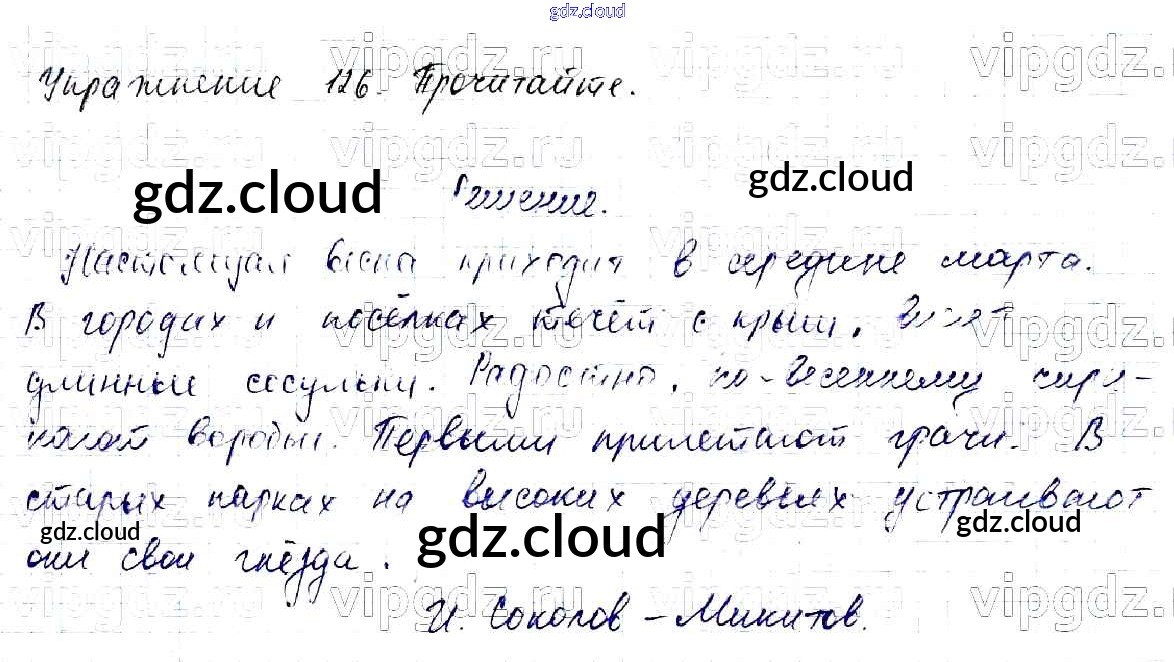 gdz.cloud
Упражнение 126. Прочитайте.
gdz.cloud Решение. gdz.cloud
Настоящая весна приходит в середине марта.
В городах и посёлках течёт с крыш. Висят
длинные сосульки. Радостно, по-весеннему чири-
кают воробьи. Первыми прилетают грачи. В
старых парках на высоких деревьях устраивают
gdz.cloud gdz.cloud gdz.cloud
они свои гнёзда.
И. Соколов-Микитов.
vipgdz.ru vipgdz.ru vipgdz.ru